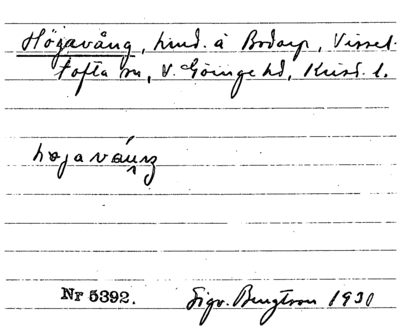 Högavång, hmd. å Bodarp, Vissel-
tofta sn, V. Göinge hd, Krist. l.
høgavåuŋ
Nr 5392.
Sigv. Bengtsson 1930